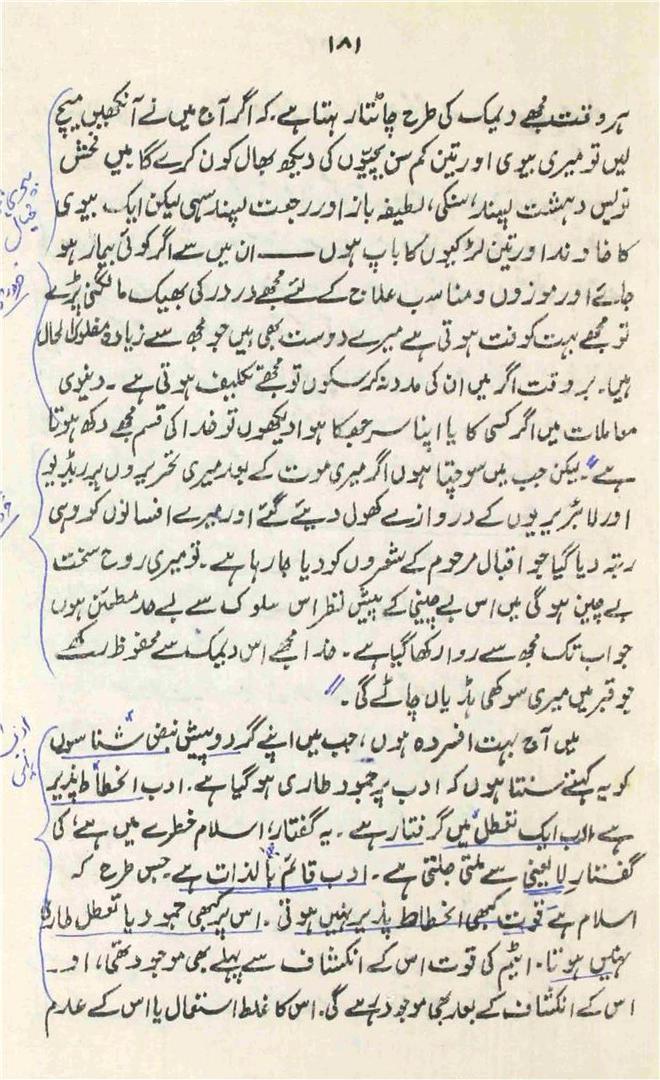 ۱۸۱
ہر وقت مجھے دیمک کی طرح چاٹتا رہتا ہے۔ کہ اگر آج میں نے آنکھیں میچ
لیں تو میری بیوی اور تین کم سن بچیوں کی دیکھ بھال کون کرے گا میں فحش
نویس دہشت پسند، سنکی، لطیفہ باز اور رجعت پسند سہی لیکن ایک بیوی
کا خاوند اور تین لڑکیوں کا باپ ہوں ——— ان میں سے اگر کوئی بیمار ہو
جائے اور موزوں و مناسب علاج کے لئے مجھے در در کی بھیک مانگنی پڑے
تو مجھے بہت کوفت ہوتی ہے میرے دوست بھی ہیں جو مجھ سے زیادہ مفلوک الحال
ہیں۔ بر وقت اگر میں ان کی مدد نہ کر سکوں تو مجھے تکلیف ہوتی ہے۔ دنیوی
معاملات میں اگر کسی کا یا اپنا سر جھکا ہوا دیکھوں تو خدا کی قسم مجھے دکھ ہوتا
ہے"۔ لیکن جب میں سوچتا ہوں اگر میری موت کے بعد میری تحریروں پر ریڈیو
اور لائبریریوں کے دروازے کھول دیئے گئے اور میرے افسانوں کو وہی
رتبہ دیا گیا جو اقبال مرحوم کے شعروں کو دیا جا رہا ہے۔ تو میری روح سخت
بے چین ہو گی میں اس بے چینی کے پیش نظر اس سلوک سے بے حد مطمئن ہوں
جو اب تک مجھ سے روا رکھا گیا ہے۔ خدا مجھے اس دیمک سے محفوظ رکھے
جو قبر میں میری سوکھی ہڈیاں چاٹے گی۔"
میں آج بہت افسردہ ہوں، جب میں اپنے گرد و پیش نبض شناسوں
کو یہ کہتے سنتا ہوں کہ ادب پر جمود طاری ہو گیا ہے۔ ادب انحطاط پذیر
ہے ادب ایک تعطل میں گرفتار ہے۔ یہ گفتار، اسلام خطرے میں ہے، کی
گفتار لا یعنی سے ملتی جلتی ہے۔ ادب قائم بالذات ہے۔ جس طرح کہ
اسلام ہے قوت کبھی انحطاط پذیر نہیں ہوتی۔ اس پر کبھی جمود یا تعطل طاری
نہیں ہوتا۔ ایٹم کی قوت اس کے انکشاف سے پہلے بھی موجود تھی، اور
اس کے انکشاف کے بعد بھی موجود رہے گی۔ اس کا غلط استعمال یا اس کے عدم